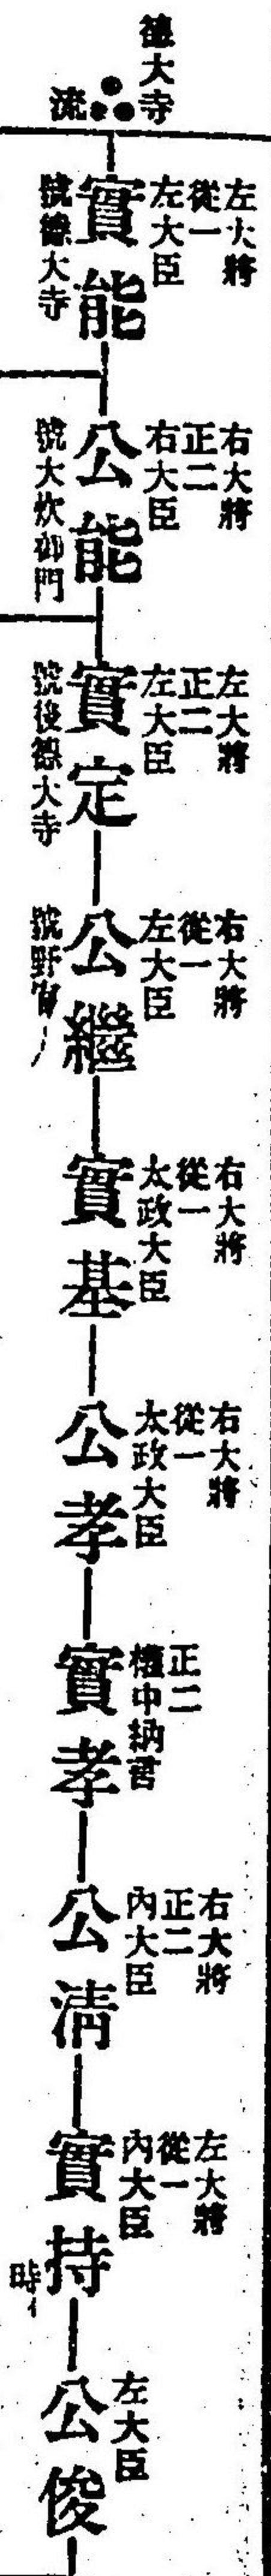 德大寺
流
左大將
從一
左大臣
實能
號德大寺
右大將
正二
右大臣
公能
號大炊御門
左大將
正二
左大臣
實定
號後德大寺
右大將
從一
左大臣
公繼
號野宮イ
右大將
從一
太政大臣
實基
右大將
從一
太政大臣
公孝
正二
權中納言
實孝
右大將
正二
內大臣
公清
左大將
從一
內大臣
實持
時イ
左大臣
公俊